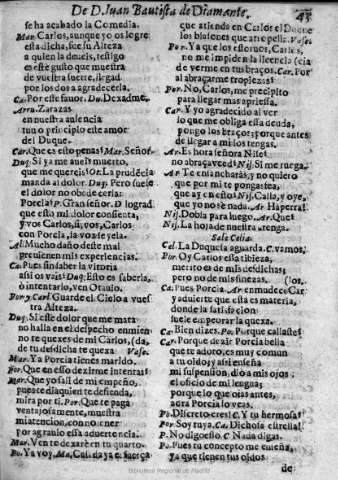 De D. Juan Bautista de Diamante. 45
se ha acabado la Comedia.
Mar. Carlos, aunque yo os logre
esta dicha, fue su Alteza
a quien la deueis, testigo
en este gusto que muestra
de vuestra suerte, llegad
por los dos a agradecerla.
Ca. Por este fauor. Du. Dexadme.
Arn. Zarazas
en nuestra ausencia
tuuo principio este amor
del Duque.
Car. Que es esto penas! Mar. Señor.
Duq. Si ya me aueis muerto,
que me quereis? Or. La prudēcia
manda al dolor. Duq. Pero suele
el dolor no obedecerla:
Porcia! P. Gran señor. D.
que esto mi dolor consienta,
y vos Carlos, si, vos, Carlos
con Porcia, la voz se yela.
Al. Mucho daño deste mal
preuienen mis experiencias.
Ca. Pues sin saber la vitoria
assi os vais? Duq. Esto es saberla,
ò intentarlo, ven Otauio.
Por. y Carl. Guarde el Cielo a vues
tra Alteza.
Duq. Si este dolor que me mata
no halla en el despecho enmienda
no te quexes de mi Carlos, (da,
de tu desdicha te quexa Vase.
Mar. Ya Porcia tienes marido.
Por. Que en esso dezirme intentas?
Mar. Que yo salí de mi empeño,
pues te di a quien te defienda,
mira por ti. Por. Que te paga
ventajosamente, muestra
mi atencion, con no tener
por agrauio essa aduertencia.
Mar. Ven te dexarè en tu quarto.
Po. Ya voy, Ma. Cal da ya es fuerça
que atienda en Carlos el Duque
los blasones que atropella. Vase.
Por. Ya que los estoruos, Carlos,
no me impiden la licencia (cia
de verme en tus braços. Car. Por
al abraçarme tropiezas?
Por. No, Carlos, me precipito
para llegar mas apriessa.
Car. Y yo agradecido al ver
lo que me obliga essa deuda,
pongo los braços; porque antes
de llegar a mi los tengas.
Ar. Es hora señora Nise?
no abraça vced? Nij. Si me ruega.
Ar. Te enlanchasà, y no quiero
que por mi te pongas tea,
que ay en esto? Nij. Calla, y oye,
que yo no sè nada. Ar. Ha perra!
Nij. Dobla para luego. Ar. Que?
Nij. La hoja de nuestra arenga.
Sale Celia.
Cel. La Duquesa aguarda. C. vamos.
Por. Oy Carlos essa tibieza,
merito es de mis desdichas;
pero no de mis finezas. (los,
Ca. Pues Porcia. Ar. enmudece Car
y aduierte que esta es materia,
donde la satisfacion
suele empeorar la quexa.
Ca. Bien dizes. Po. Porque callaste?
Car. Porque dezir Porcia bella
que te adoro, es muy comun
a tu oldo; y assi enseña
mi suspension, diò a mis ojos
el oficio de mi lengua;
porque lo que oias antes,
aora Porcia lo veas.
Po. Discreto eres! C. Y tu hermosa!
Por. Soy tuya. Ca. Dichosa estrella!
P. No digo esso. C. Nada digas.
Po. Pues tu concepto me enseña,
ya que tienen sus oldos
de
Biblioteca Regional de Madrid